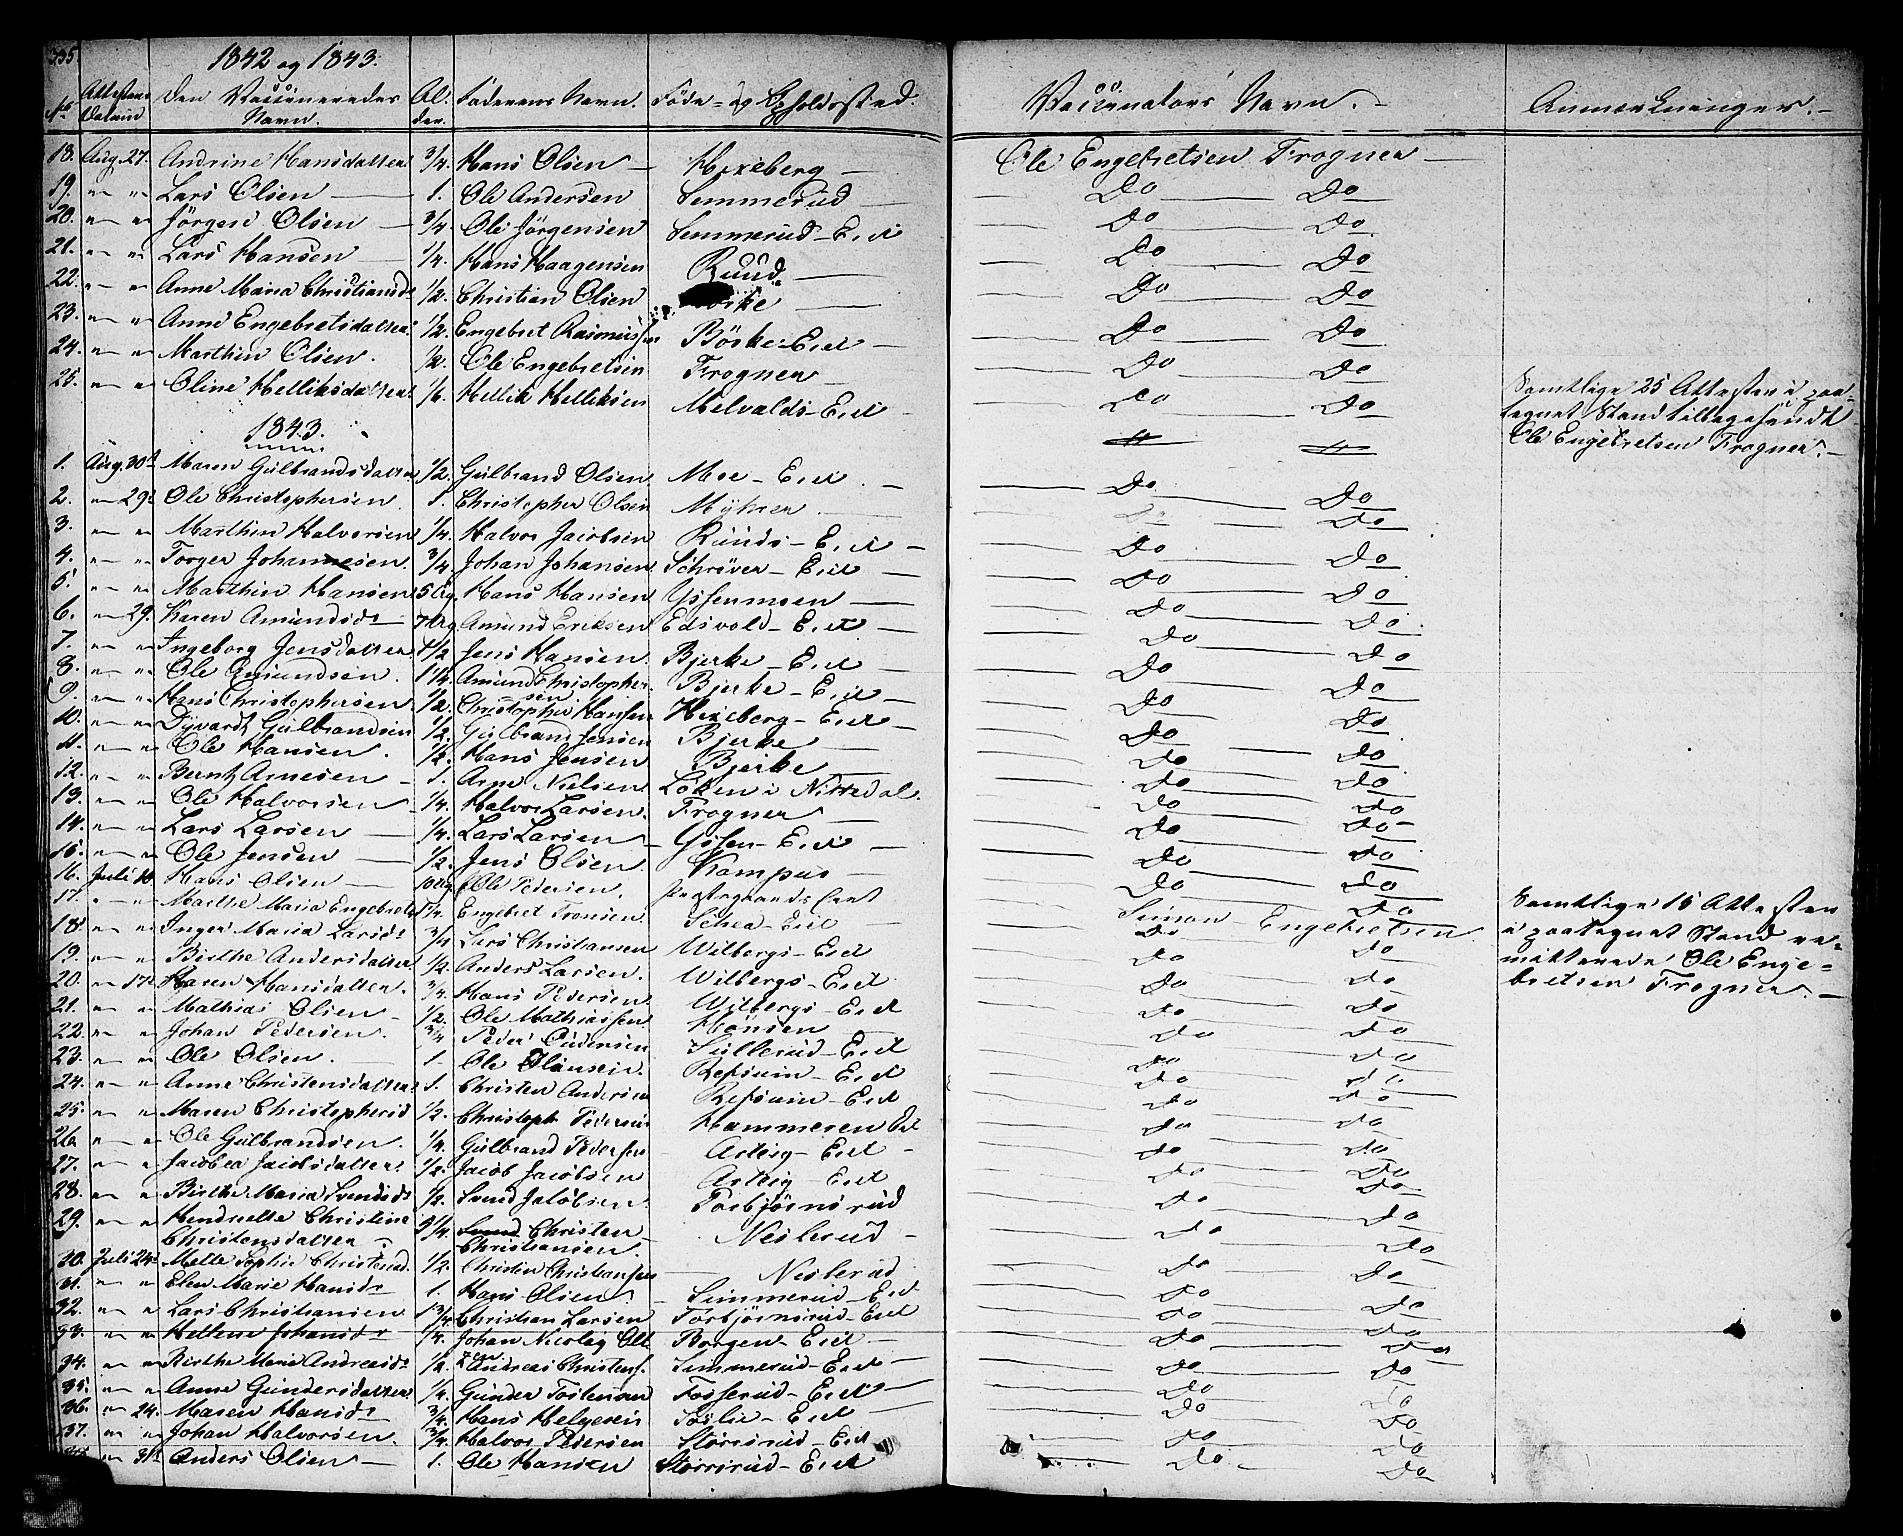 335
1842 og 1843.
No Attestens Datum Den Vaccineredes Navn. Alder. Faderens Navn. Føde- og Opholdssted. Vaccinators Navn. Anmærkninger.
18. Aug. 27. Andrine Hansdatter 3/4. Hans Olsen Hexeberg Ole Engebretsen Frogner
19. " " Lars Olsen 1. Ole Andersen Semmerud Do Do
20. " " Jörgen Olsen 3/4. Ole Jörgensen Semmerud-Eiet Do Do
21. " " Lars Hansen 1/4. Hans Haagensen Ruud Do Do
22. " " Anne Maria Christiansdr 1/2. Christian Olsen Do Do
23. " " Anne Engebretsdatter 1/2. Engebret Rasmussen Börke-Eiet Do Do
24. " " Marthin Olsen. 1/2. Ole Engebretsen Frogner Do Do
25. " " Oline Helliksdatter 1/6. Hellik Helliksen Melvolds-Eiet Do Do Samtlige 25 Attester i paa-
tegnet Stand tilbagesendt
Ole Engebretsen Frogner.
1843.
1. Aug. 30t Maren Gulbrandsdatter 1/2. Gulbrand Olsen Moe-Eiet Do Do
2. " 29. Ole Christophersen 1. Christopher Olsen Myhrer Do Do
3. " " Marthin Halvorsen 1/4. Halvor Jacobsen Ruuds-Eiet Do Do
4. " " Torger Johannesen 3/4. Johan Johansen Schröver-Eiet Do Do
5. " " Marthin Hansen 5 Ug. Hans Hansen Yssenmoen Do Do
6. " 29. Karen Amundsdr 7 Ug. Amund Eriksen Edsvold-Eiet Do Do
7. " " Ingeborg Jensdatter 1/2 Jens Hansen. Bjerke-Eiet Do Do
8. " " Ole Amundsen. 1 1/4. Amund Christopher-
sen Bjerke-Eiet Do Do
9. " " Hans Christophersen 1/2. Christopher Hansen Hexeberg-Eiet Do Do
10. " " Gulbrandsen 1/2. Gulbrand Jensen Bjerke Do Do
11. " " Ole Hansen. 1/2. Hans Jensen Bjerke Do Do
12. " " Berntz Arnesen 1. Arne Nielsen Löken i Nittedal. Do Do
13. " " Ole Halvorsen 1/4. Halvor Larsen Frogner Do Do
14. " " Lars Larsen 1/4. Lars Larsen Yssen-Eiet Do Do
15. " " Ole Jensen 1/2. Jens Olsen Kampus Do Do
16. Juli Hans Olsen 10 Ug. Ole Pedersen. Do Do
17. " " Marthe Maria Engebrets 1 1/4. Engebret Tronsen. Schea-Eiet Simon Engebretsen Samtlige 15 Attester
i paategnet Stand re-
mitterede Ole Enge-
bretsen Frogner.
18. " " Inger Maria Larsdr 3/4. Lars Christiansen Wilbergs-Eiet Do Do
19. " " Birthe Andersdatter 1/2. Anders Larsen. Wilbergs-Eiet Do Do
20. " 17. Karen Hansdatter. 3/4. Hans Pedersen Wilbergs-Eiet Do Do
21. " " Mathias Olsen 1/2. Ole Mathiassen Hönsen Do Do
22. " " Johan Pedersen. 3/4 Peder Sullerud-Eiet Do Do
23. " " Ole Olsen. 1 Ole Refsum-Eiet Do Do
24. " " Anne Christensdatter 1. Christen Andersen Refsum-Eiet Do Do
25. " " Maren Christophersd 1/2. Christoph Pedersen Hammeren Eiet Do Do
26. " " Ole Gulbrandsen. 1/4. Gulbrand Pedersen Asteig-Eiet Do Do
27. " " Jacobea Jacobsdatter. 1/2. Jacob Jacobsen Asteig-Eiet Do Do
28. " " Birthe Maria Svendsdr 1/2. Svend Jacobsen. Torbjörnsrud Do Do
29. " " Hendriette Christine
Christensdatter 3 1/4. Christen
Christiansen. Neslerud Do Do
30. Juli 24. Mette Sophie Christensd. 1/2. Christen Christiansen Neslerud Do Do
31. " " Elen Marie Hansdr 1. Hans Olsen. Simmerud-Eiet Do Do
32. " " Lars Christiansen 1 3/4. Christian Larsen Torbjörnsrud-Eiet Do Do
33. " " Hellene Johansdr 1/4. Johan Nicolay Borgen-Eiet Do Do
34. " " Birthe Marie Andreasdr 1/2. Andreas Christens. Simmerud-Eiet Do Do
35. " " Anne Gundersdatter 1/4. Gunder Tostensen Fosserud-Eiet Do Do
36. " 24. Maren Hansdr 3/4. Hans Helgesen Foslie-Eiet Do Do
37. " " Johan Halvorsen. 3/4. Halvor Pedersen Störsrud-Eiet Do Do
" 31t Anders Olsen 1. Ole Hansen Störsrud-Eiet Do Do